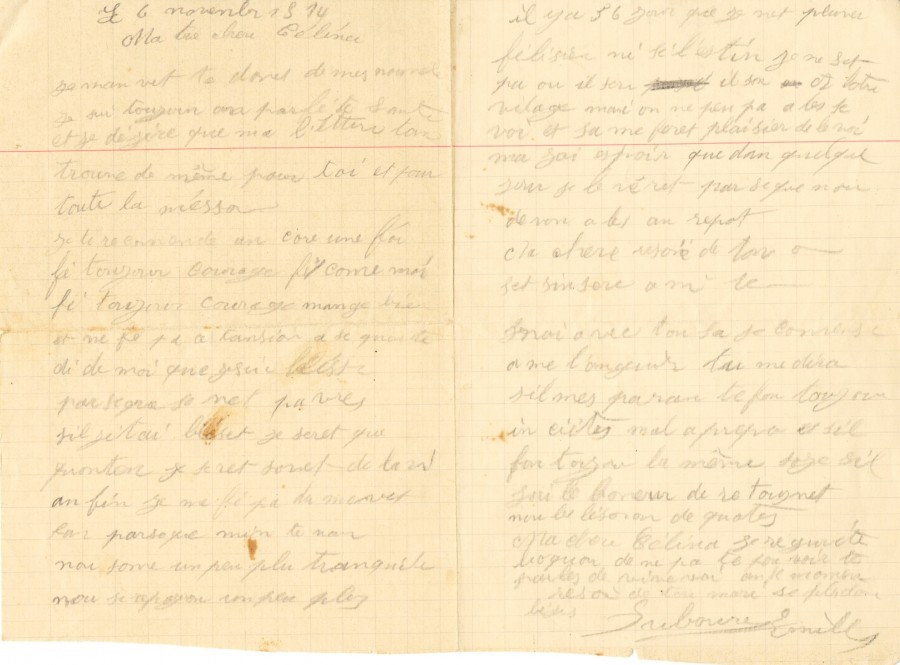 Le 6 novembr 1914
Ma bie cheri Célina
je man vet te dones de mes nouvel
je sui toujour an parfête santé
et je désire que ma lettre tan
trouve de même pour toi et pour
toute la méson
je te recomende an core une foi
fè toujour courage fè come moi
fè toujour courage mange bien
et ne fè pa atansion a se que on te
di de moi que je sui blésse
parseque se net pa vrés
si jétai blésset je seret que
conten je seret sovet de la vi
an fin je me fè pa du mové
san parseque min te nan
nou some un peu plu tranquile
nou se reposon un peu plus
il y a 56 jour que je net plu vu
félisien ni séléstin je ne set
pa ou il son il son o votre
vilage mai on ne peu pa ales se
voi et sa me foret plaisier de le voi
ma jai espoir que dan quelque
jour je le véret parseque nou
devon ales au repot
Ma chere resoi de ton
set sinsere ami le
mai avec tou sa je comense
a me l'anguir tu me dira
si mes paran te fon toujour
mal a propo et si
fon toujou la même soze si
jai le boneur de retournet
nou
Ma cheri Célina je
de ne pa te pouvoir te
parles de vive voi an se momen
resoi de ton mari se plito
bises
Emille